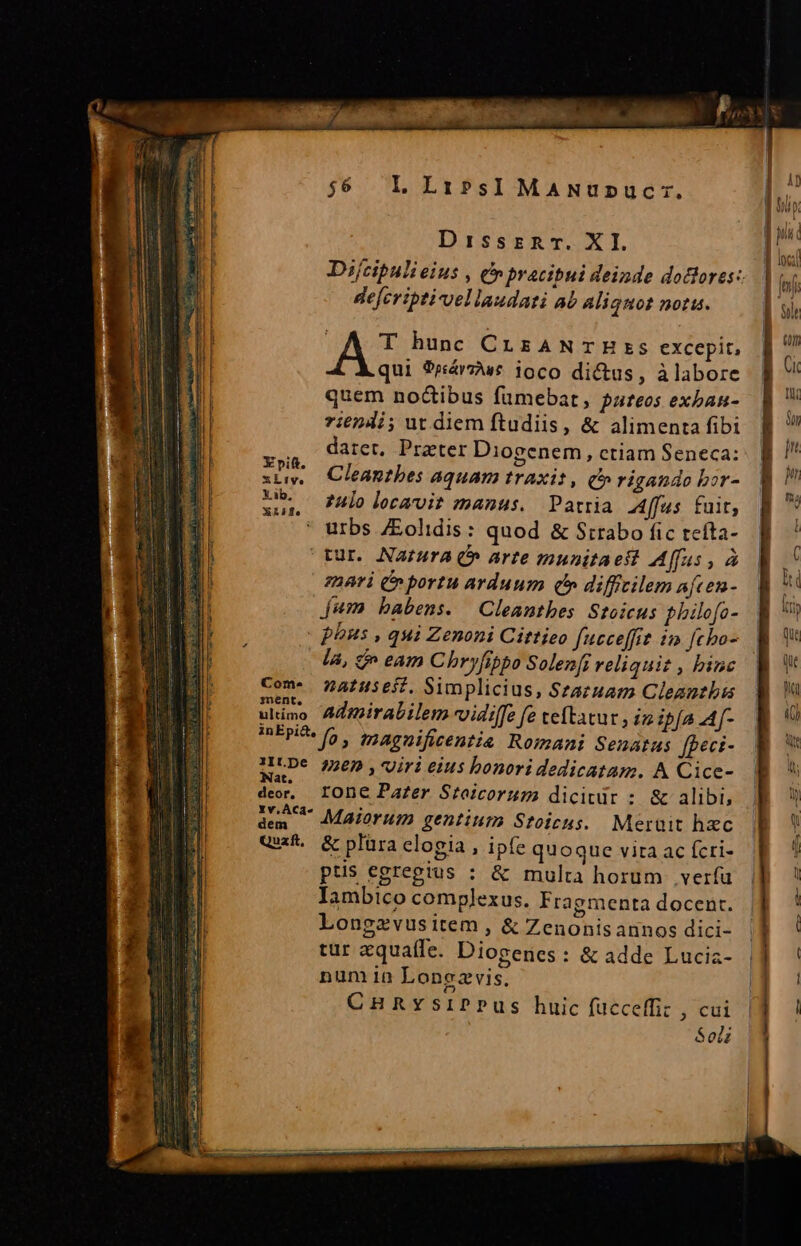 56 I. LIPSI MANUDUCT.
DISSERT. XI.
Diſcipuli eius, & præcipui deinde doctores:
deſcripti vel laudati ab aliquot notis.
AT hunc CLEANTHES excepit,
qui Φρεάντλης ioco dictus, à labore
quem noctibus ſumebat, puteos exhau-
riendi; ut diem ſtudiis, & alimenta ſibi
daret. Præter Diogenem, etiam Seneca:
Epiſt.
XLIV.
Cleanthes aquam traxit, & rigando hor-
Lib.
XIII.
tulo locavit manus. Patria Aſſus fuit,
urbs Æolidis: quod & Strabo ſic teſta-
tur. Natura & arte munita eſt Aſſus, à
mari & portu arduum & difficilem aſcen-
ſum habens. Cleanthes Stoicus philoſo-
phus, qui Zenoni Cittieo ſucceſſit in ſcho-
la, & eam Chryſippo Solenſi reliquit, hinc
Com-
ment.
natus eſt. Simplicius, Statuam Cleanthis
ultimo
admirabilem vidiſſe ſe teſtatur, in ipſa Aſ-
in Epict.
ſo, magnificentiæ Romani Senatus ſpeci-
III. De
Nat.
men, viri eius honori dedicatam. A Cice-
deor.
rone Pater Stoicorum dicitur: & alibi,
IV. Aca-
dem
Maiorum gentium Stoicus. Meruit hæc
Quæſt.
& plura elogia, ipſe quoque vita ac ſcri-
ptis egregius: & multa horum verſu
Iambico complexus. Fragmenta docent.
Longævus item, & Zenonis annos dici-
tur æquaſſe. Diogenes: & adde Lucia-
num in Longævis.
CHRYSIPPUS huic ſucceſſit, cui
Soli